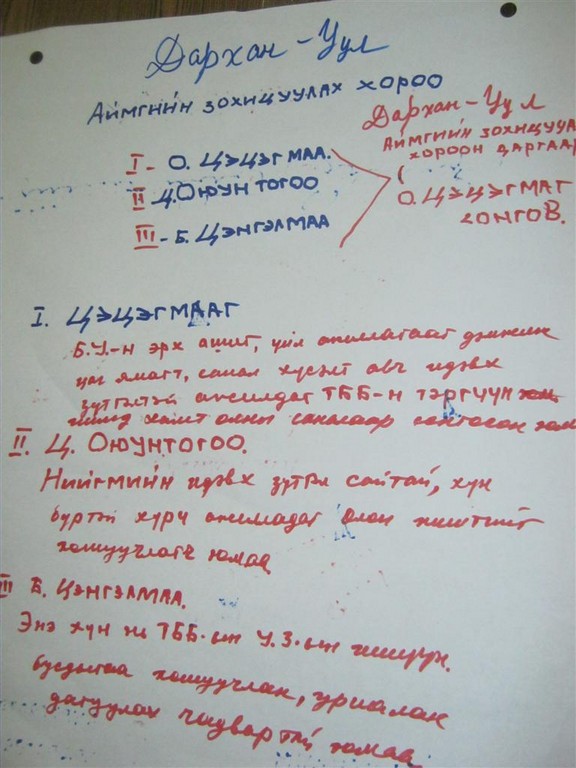 Дархан-Уул
Аймгийн зохицуулах хороо
I - О. Цэцэгмаа.
II Ц. Оюунтогоо
III - Б. Цэнгэлмаа
Дархан-Уул
Аймгийн зохицуул
хороон даргаар
О. Цэцэгмаг
сонгов.
I. Цэцэгмааг
Б.У.-н эрх ашиг, үйл ажиллагааг дэмжиж
цаг ямагт, санал хүсэлт авч идэвх
зүтгэлтэй ажилладаг ТББ-н тэргүүн
гишүүд хамт олны саналаар сонгосон юм
II. Ц. Оюунтогоо.
Нийгмийн идэвх зүтгэл сайтай, хүн
бүртэй хүрч ажилладаг олон нийтийг
хошуучлагч юмаа
III Б. Цэнгэлмаа.
Энэ хүн нь ТББ-ын У.З-ын гишүүн.
бусдыгаа хошуучлан, уриалан
дагуулах чадвартай юмаа